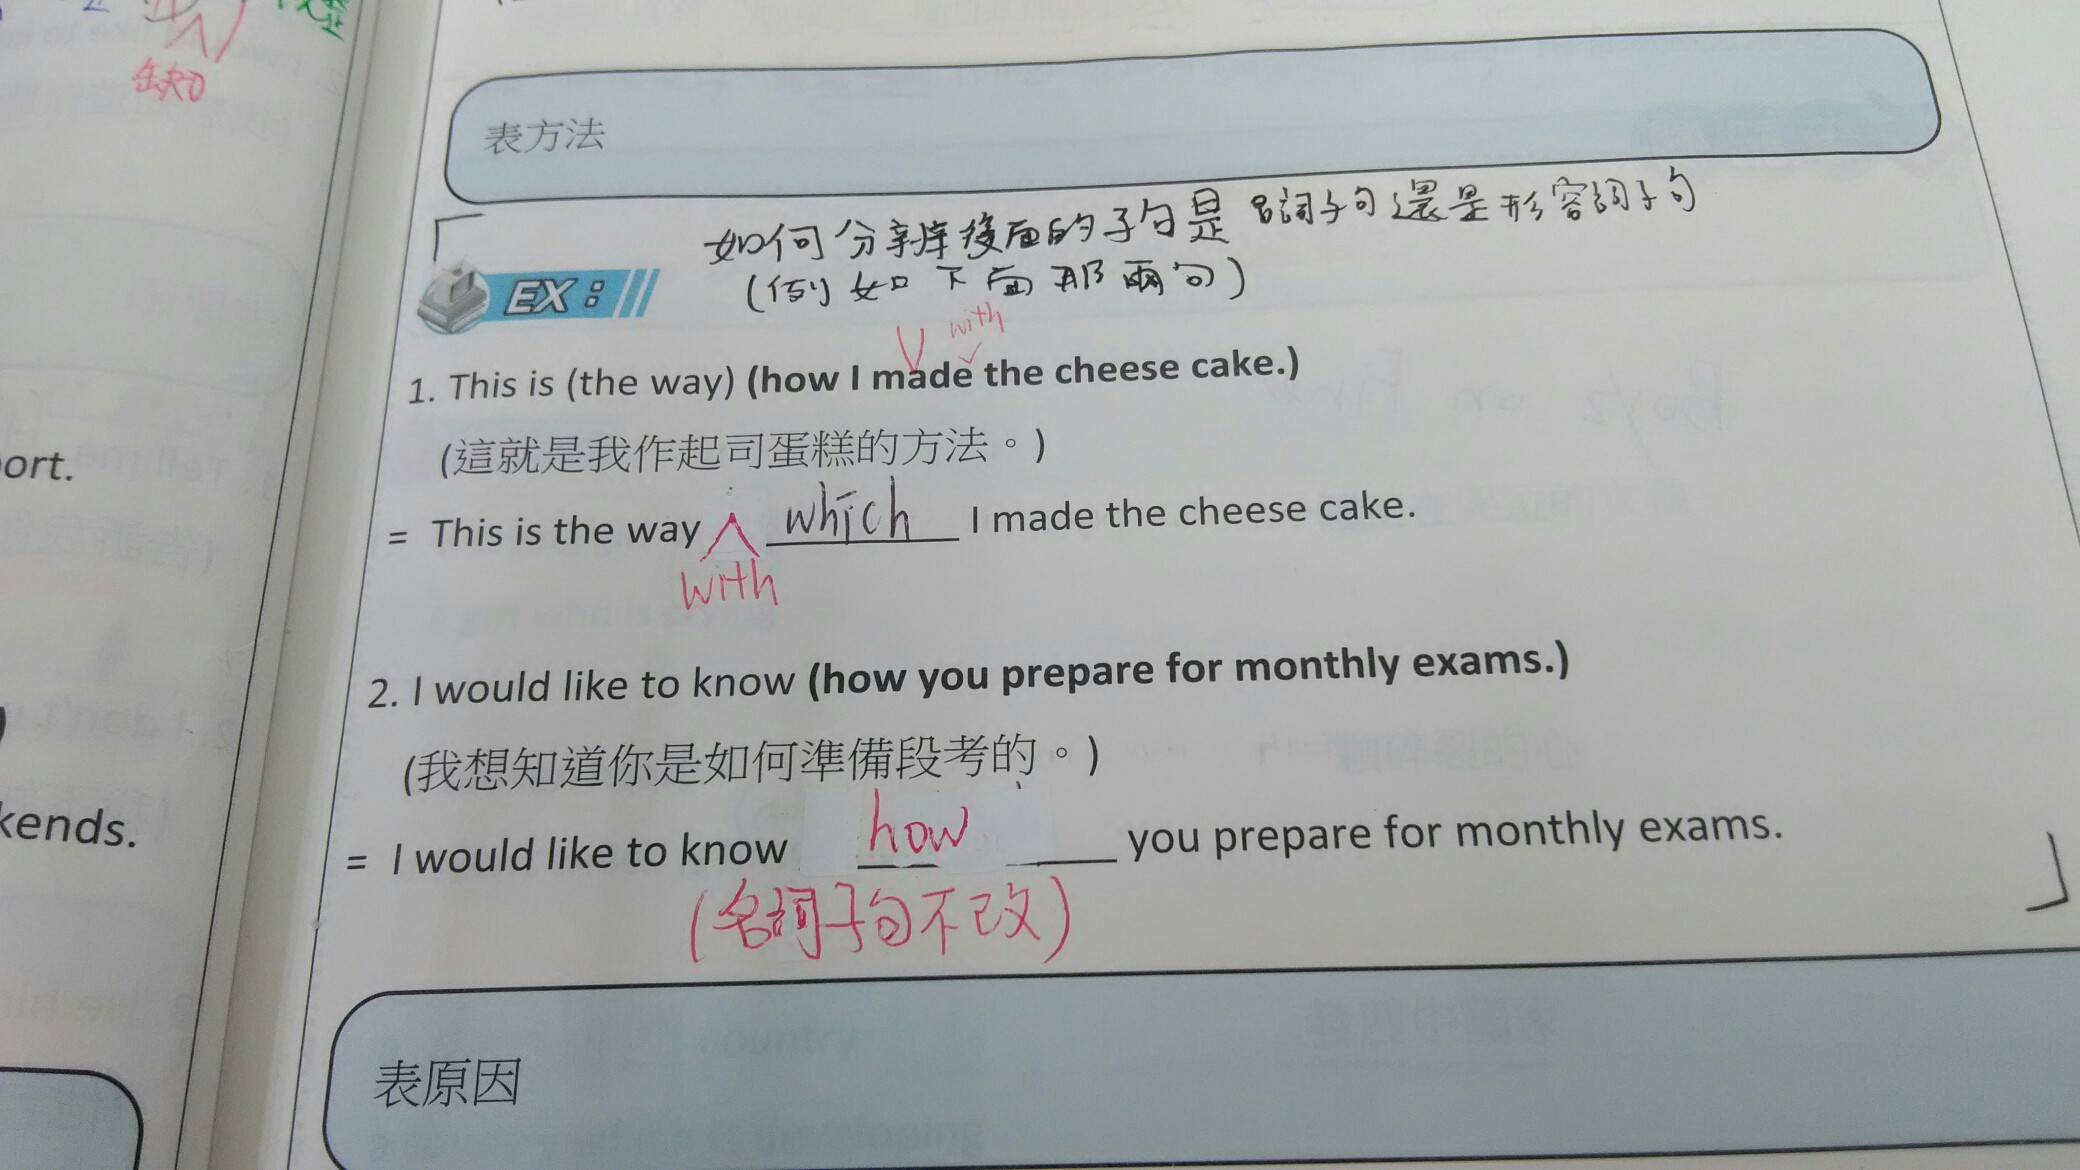 缺
ort.
kends.
表方法
如何分辨後面的子句是名詞子句還是形容詞子句
(例如下面那兩句)
EX:
with
1. This is (the way) (how I made the cheese cake.)
(這就是我作起司蛋糕的方法。)
= This is the way which I made the cheese cake.
with
2. I would like to know (how you prepare for monthly exams.)
(我想知道你是如何準備段考的。)
= I would like to know how you prepare for monthly exams.
(名詞子句不改)
表原因